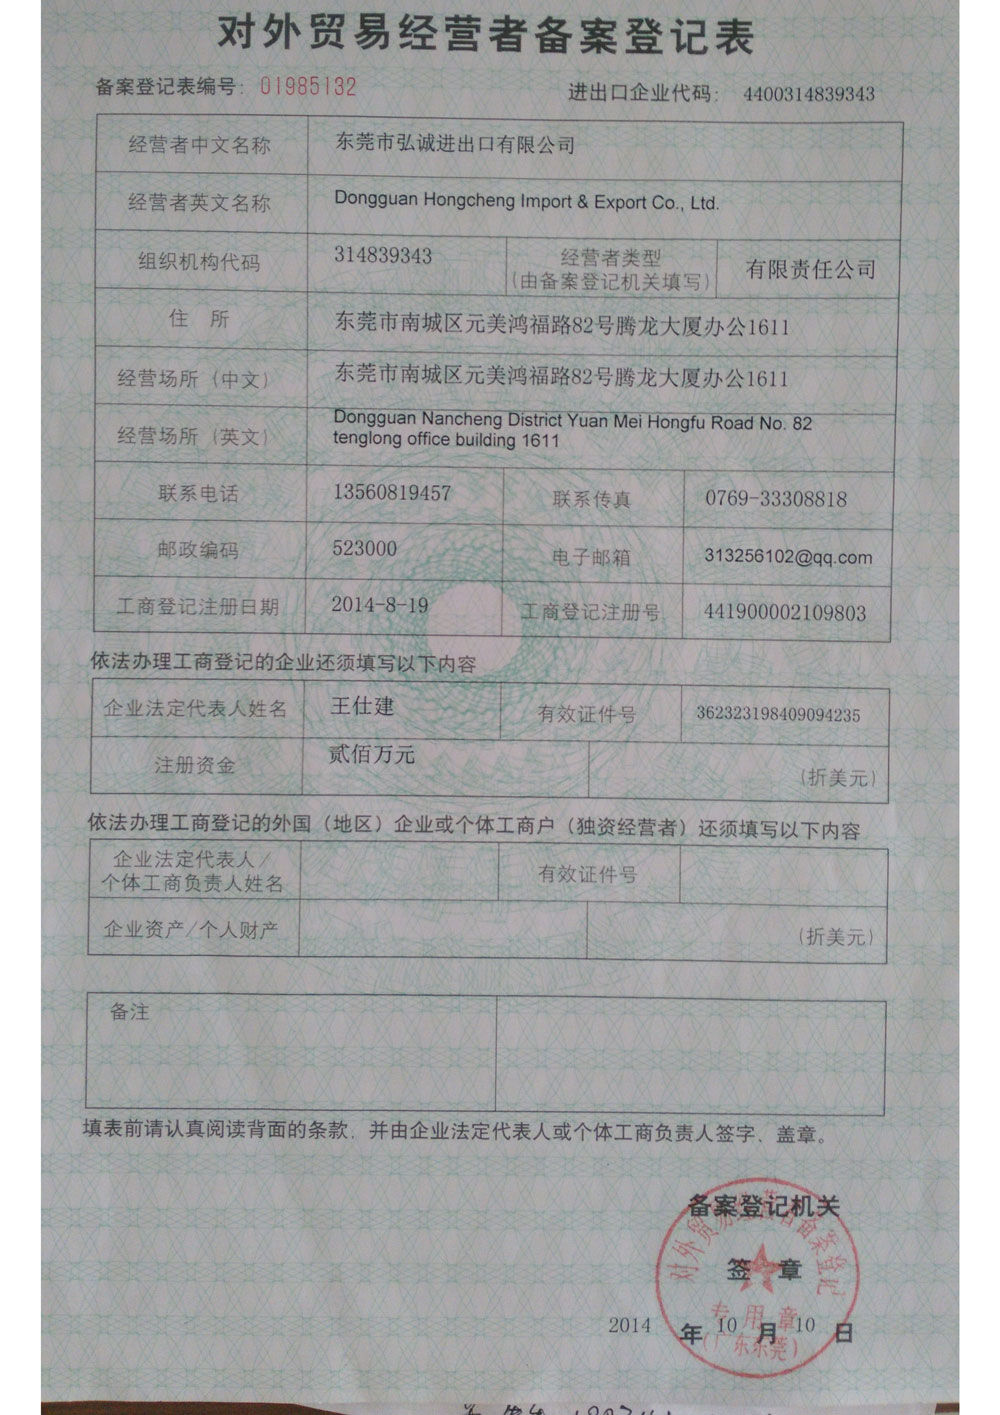 对外贸易经营者备案登记表
备案登记表编号: 01985132
进出口企业代码: 4400314839343
经营者中文名称 东莞市弘诚进出口有限公司
经营者英文名称 Dongguan Hongcheng Import & Export Co., Ltd.
组织机构代码 314839343 经营者类型 有限责任公司
(由备案登记机关填写)
住 所 东莞市南城区元美鸿福路82号腾龙大厦办公1611
经营场所（中文） 东莞市南城区元美鸿福路82号腾龙大厦办公1611
经营场所（英文） Dongguan Nancheng District Yuan Mei Hongfu Road No. 82
tenglong office building 1611
联系电话 13560819457 联系传真 0769-33308818
邮政编码 523000 电子邮箱 313256102@qq.com
工商登记注册日期 2014-8-19 工商登记注册号 441900002109803
依法办理工商登记的企业还须填写以下内容
企业法定代表人姓名 王仕建 有效证件号 362323198409094235
注册资金 贰佰万元 (折美元)
依法办理工商登记的外国（地区）企业或个体工商户（独资经营者）还须填写以下内容
企业法定代表人/
个体工商负责人姓名 有效证件号
企业资产/个人财产 (折美元)
备注
填表前请认真阅读背面的条款，并由企业法定代表人或个体工商负责人签字、盖章。
备案登记机关
对外贸易经营者备案登记
签 章
专用章
2014 年 10 月 10 日
(广东东莞)